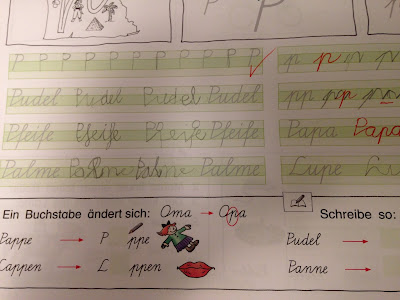 P
P P P P P P P P P P P p p p p
Pudel Pudel Pudel Pudel pp pp pp
Pfeife Pfeife Pfeife Pfeife Papa Papa
Palme Palme Palme Palme Lupe
Ein Buchstabe ändert sich: Oma → Opa Schreibe so:
Pappe → P ppe Pudel →
Lappen → L ppen Panne →